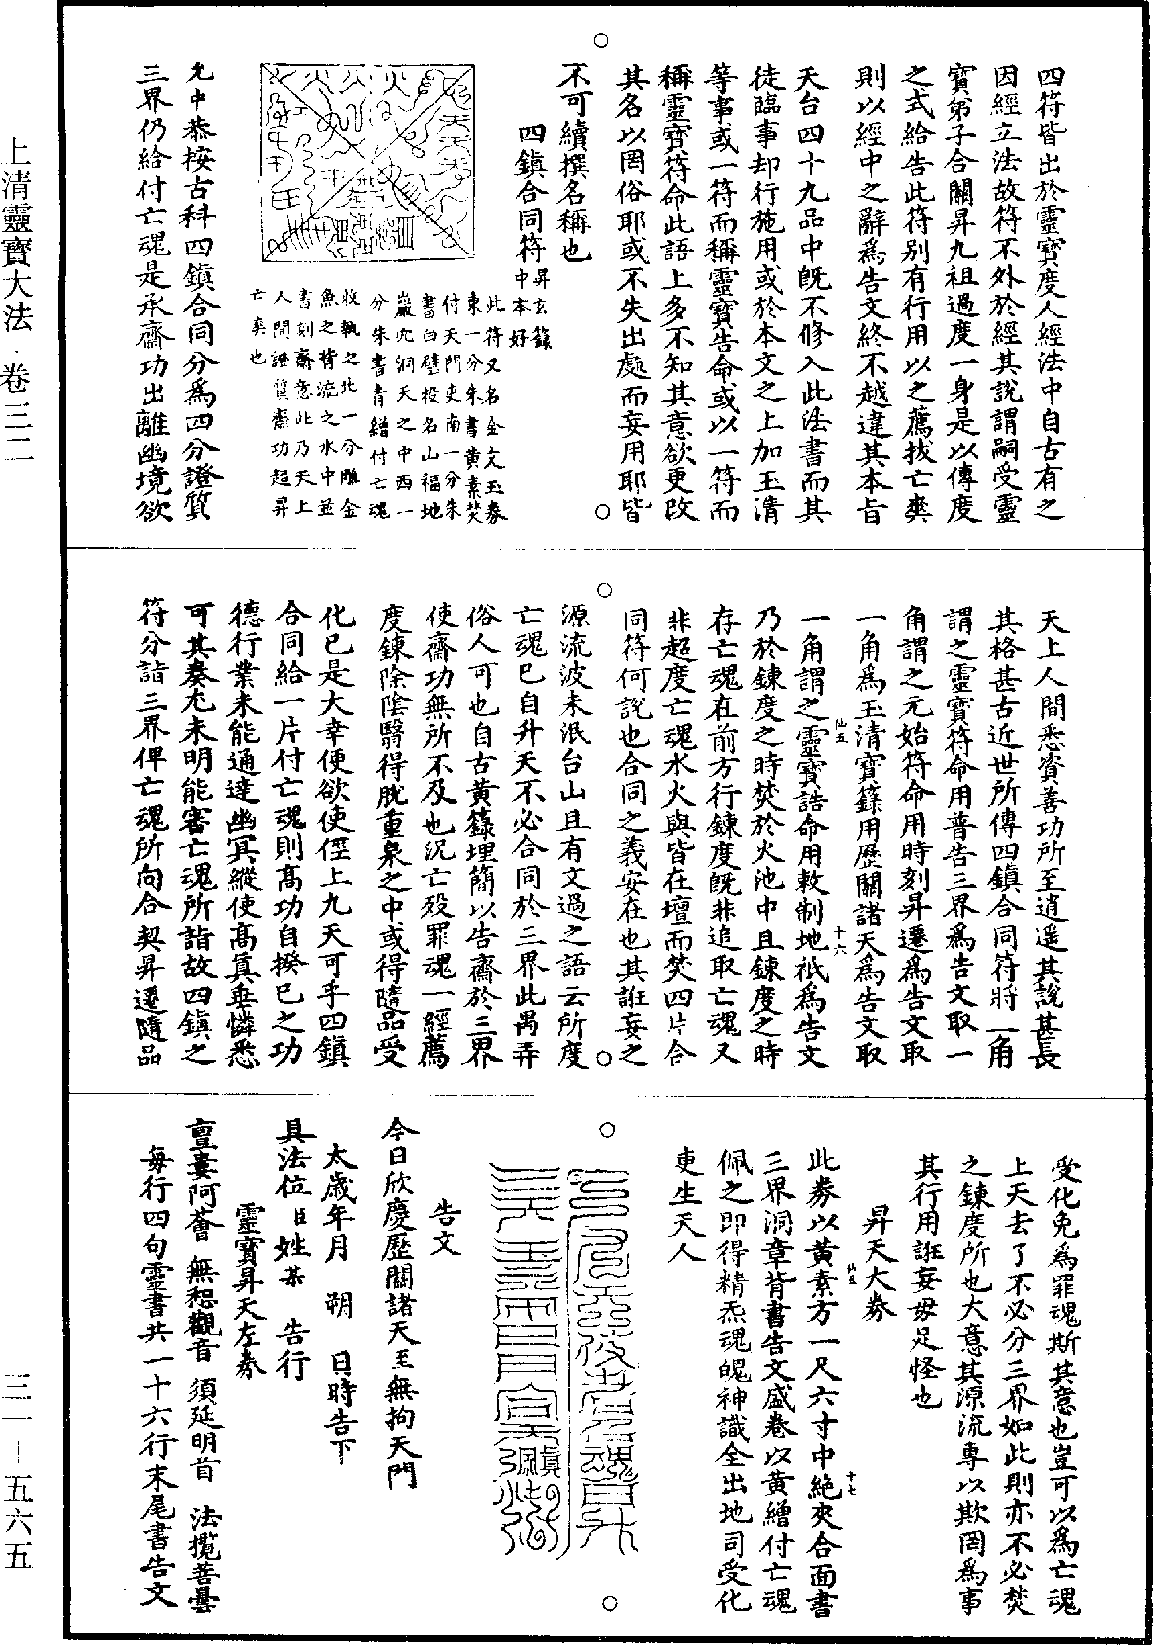 上清靈寶大法·卷三二
三一－五六五
四符皆出於靈寶度人經法中自古有之
因經立法故符不外於經其說謂嗣受靈
寶弟子合關昇九祖過度一身是以傳度
之式給告此符别有行用以之薦拔亡爽
則以經中之辭爲告文終不越違其本旨
天台四十九品中旣不修入此法書而其
徒臨事却行施用或於本文之上加玉清
等事或一符而稱靈寶告命或以一符而
稱靈寶符命此語上多不知其意欲更改
其名以罔俗耶或不失出處而妄用耶皆
不可續撰名稱也
四鎮合同符昇玄籙中本好
此符又名金文玉券
東一分朱書黄素焚
付天門吏南一分朱
書白壁投名山福地
巖穴洞天之中西一
分朱書青繒付亡魂
收執之北一分雕金
魚之背流之水中並
書刻齋意此乃天上
人間證質齋功超昇
亡爽也
允中恭按古科四鎮合同分爲四分證質
三界仍給付亡魂是承齋功出離幽境欲
天上人間悉賚善功所至逍遥其說甚長
其格甚古近世所傳四鎮合同符將一角
謂之靈寶符命用普告三界爲告文取一
角謂之元始符命用時刻昇遷爲告文取
一角爲玉清寶籙用歷關諸天爲告文取
一角謂之靈寶誥命用敕制地祇爲告文
乃於鍊度之時焚於火池中且鍊度之時
存亡魂在前方行鍊度旣非追取亡魂又
非超度亡魂水火與皆在壇而焚四片合
同符何說也合同之義安在也其誑妄之
源流波未泯台山且有文過之語云所度
亡魂已自升天不必合同於三界此愚弄
俗人可也自古黄籙埋簡以告齋於三界
使齋功無所不及也况亡殁罪魂一經薦
度鍊除陰翳得脱重泉之中或得隨品受
化已是大幸便欲使徑上九天可乎四鎮
合同給一片付亡魂則高功自揆已之功
德行業未能通達幽冥縱使高真垂憐悉
可其奏尤未明能審亡魂所詣故四鎮之
符分詣三界俾亡魂所向合契昇遷隨品
受化免爲罪魂斯其意也豈可以爲亡魂
上天去了不必分三界如此則亦不必焚
之鍊度所也大意其源流專以欺罔爲事
其行用誑妄毋足怪也
昇天大券
此券以黄素方一尺六寸中絶夾合面書
三界洞章背書告文盛卷以黄繒付亡魂
佩之即得精炁魂魄神識全出地司受化
更生天人
告文
今日欣慶歷關諸天至無拘天門
太歲年月 朔 日時告下
具法位臣姓某 告行
靈寶昇天左券
亶婁阿薈 無惒觀音 須延明首 法攬菩曇
每行四句靈書共一十六行末尾書告文